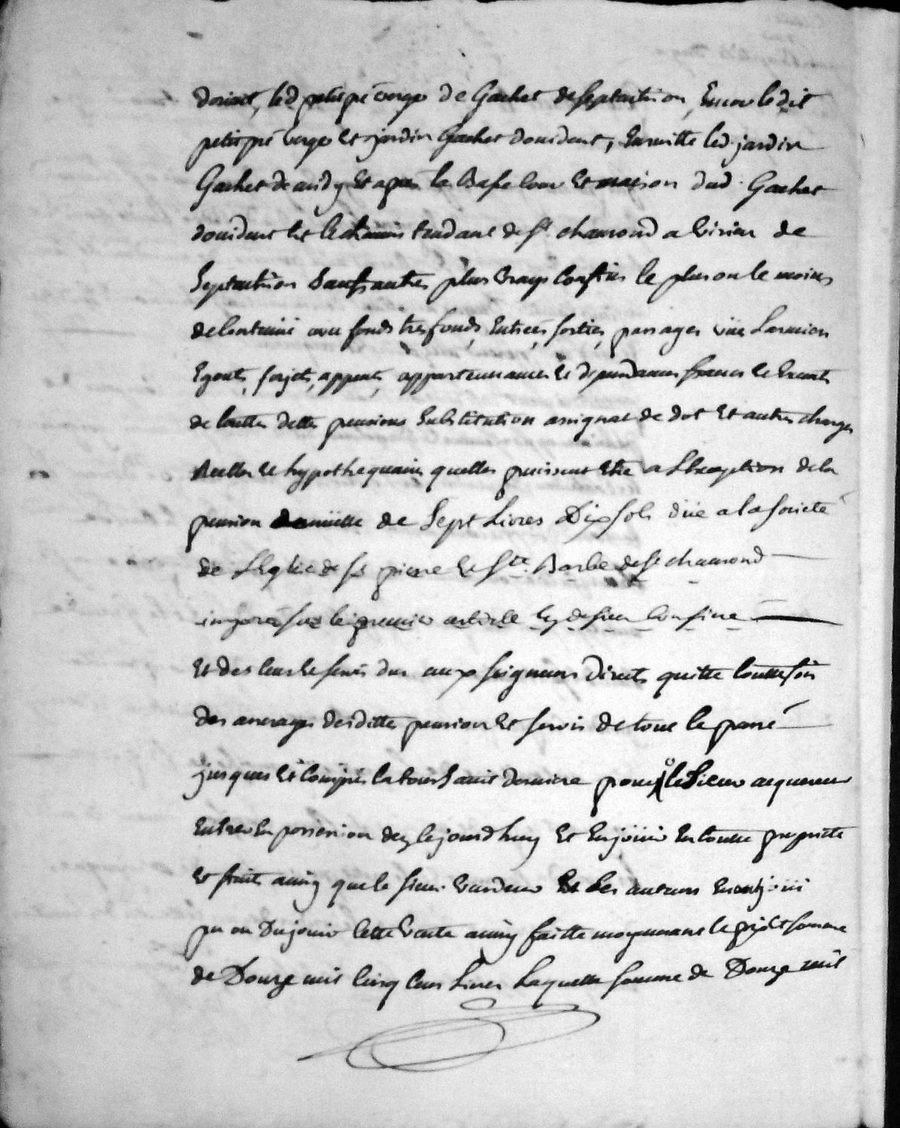 dorient, led petit pré verger de Gachet de septentrion, Encor le dit
petit pré verger et jardin Gachet doccident, Ensuitte led jardin
Gachet de midy Et apres la Basse Cour Et maison dud Gachet
doccident Et le chemin tendant de st chamond a Virieu de
Septentrion Sauf autres plus vrays Confins le plus ou le moins
de Contenu avec fonds tres fonds, Entrées, sorties, passages
Egouts, forjets, appents, appartenances et dependances francs et Exempts
de touttes dettes pensions Substitution assignat de dot Et autres charges
Reelles et hypothequaires quelles puissent Etre a L'exception de la
pension annuelle de Sept Livres Dix sols düe a la societé
de L'Eglise de st pierre Et ste Barbe de st chamond
imposée sur le premier article Cy dessus Confiné
Et des Cens et servis dus aux seigneurs Directs quitte touttefois
des arrerages desditte pension et servis de tout le passé
jusques Et Compris la toussaint derniere pour le Sieur acquereur
Entrer En possession dez le jourdhuy Et En joüir En toutte proprieté
et fruit ainsy que le sieur vendeur Et Les auteurs En ont joüi
pu ou Du joüir Cette Vente ainsy faitte moyennant le prix Et somme
de Douze mil Cinq Cens Livres Laquelle somme de Douze mil